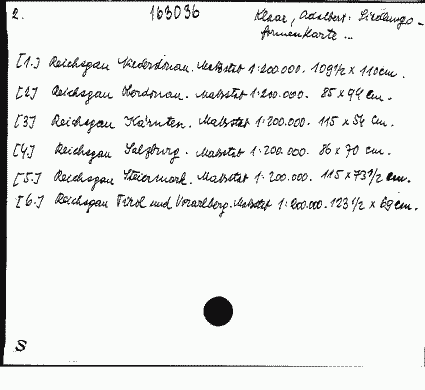 2. 163036 Klaar, Adalbert: Siedlungs-
formenkarte ...
[1.] Reichsgau Niederdonau. Maßstab 1:200.000. 109 1/2 x 110 cm.
[2.] Reichsgau Oberdonau. Maßstab 1:200.000. 85 x 94 cm.
[3.] Reichsgau Kärnten. Maßstab 1:200.000. 115 x 54 cm.
[4.] Reichsgau Salzburg. Maßstab 1:200.000. 86 x 70 cm.
[5.] Reichsgau Steiermark. Maßstab 1:200.000. 115 x 73 1/2 cm.
[6.] Reichsgau Tirol und Vorarlberg. Maßstab 1:200.000. 123 1/2 x 69 cm.
S